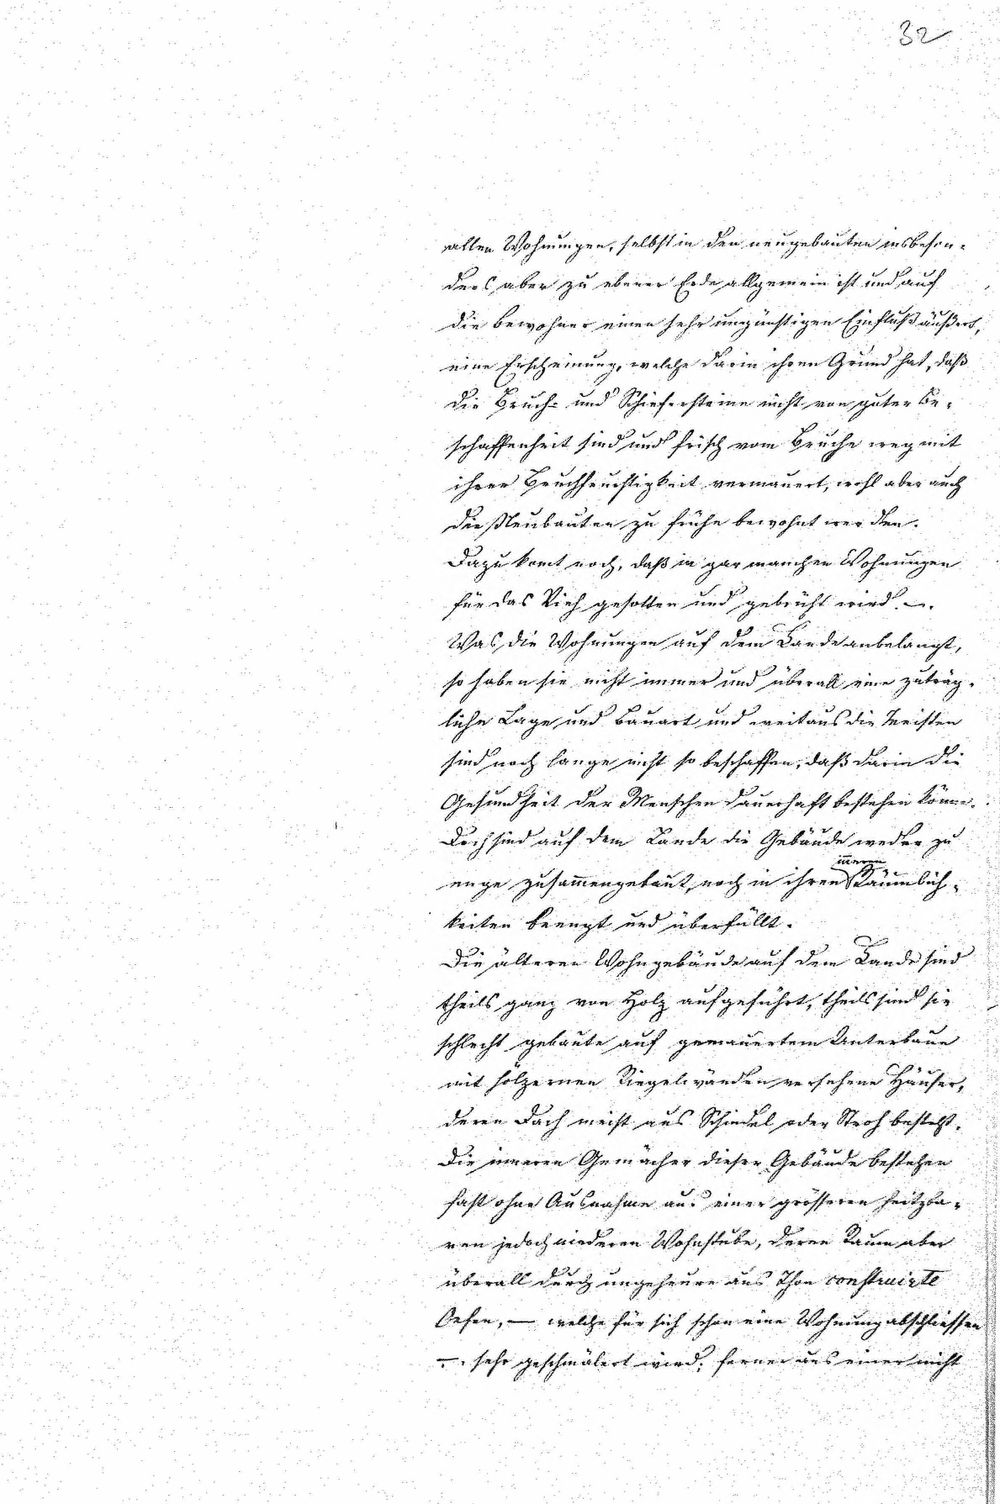 32
allen Wohnungen, selbst in den neugebauten insbeson-
ders aber zu ebener Erde allgemein ist und auf
die Bewohner einen sehr ungünstigen Einfluß äußert,
eine Erscheinung, welche darin ihren Grund hat, daß
die Bruch- und Schiefersteine nicht von guter Be-
schaffenheit sind und frisch vom Bruche weg mit
ihrer Bruchfeuchtigkeit vermauert, wohl aber auch
die Neubauten zu frühe bewohnt werden.
Dazu komt noch, daß in gar manchen Wohnungen
für das Vieh gesotten und gebrüht wird. —.
Was die Wohnungen auf dem Lande anbelangt,
so haben sie nicht immer und überall eine zuträg-
liche Lage und Bauart und weitaus die Meisten
sind noch lange nicht so beschaffen, daß darin die
Gesundheit der Menschen dauerhaft bestehen könne.
Doch sind auf dem Lande die Gebäude weder zu
enge zusammengebaut, noch in ihren inneren Räumlich-
keiten beengt und überfüllt.
Die älteren Wohngebäude auf dem Lande sind
theils ganz von Holz aufgeführt, theils sind sie
schlecht gebaute auf gemauertem Unterbaue
mit hölzernen Riegelwänden versehene Häuser,
deren Dach meist aus Schindel oder Stroh besteht.
Die inneren Gemächer dieser Gebäude bestehen
fast ohne Ausnahme aus einer grösseren heitzba-
ren jedoch niederen Wohnstube, deren Raum aber
überall durch ungeheure aus Thon construirte
Oefen, — welche für sich schon eine Wohnung abschliessen
—, sehr geschmälert wird; ferner aus einer nicht